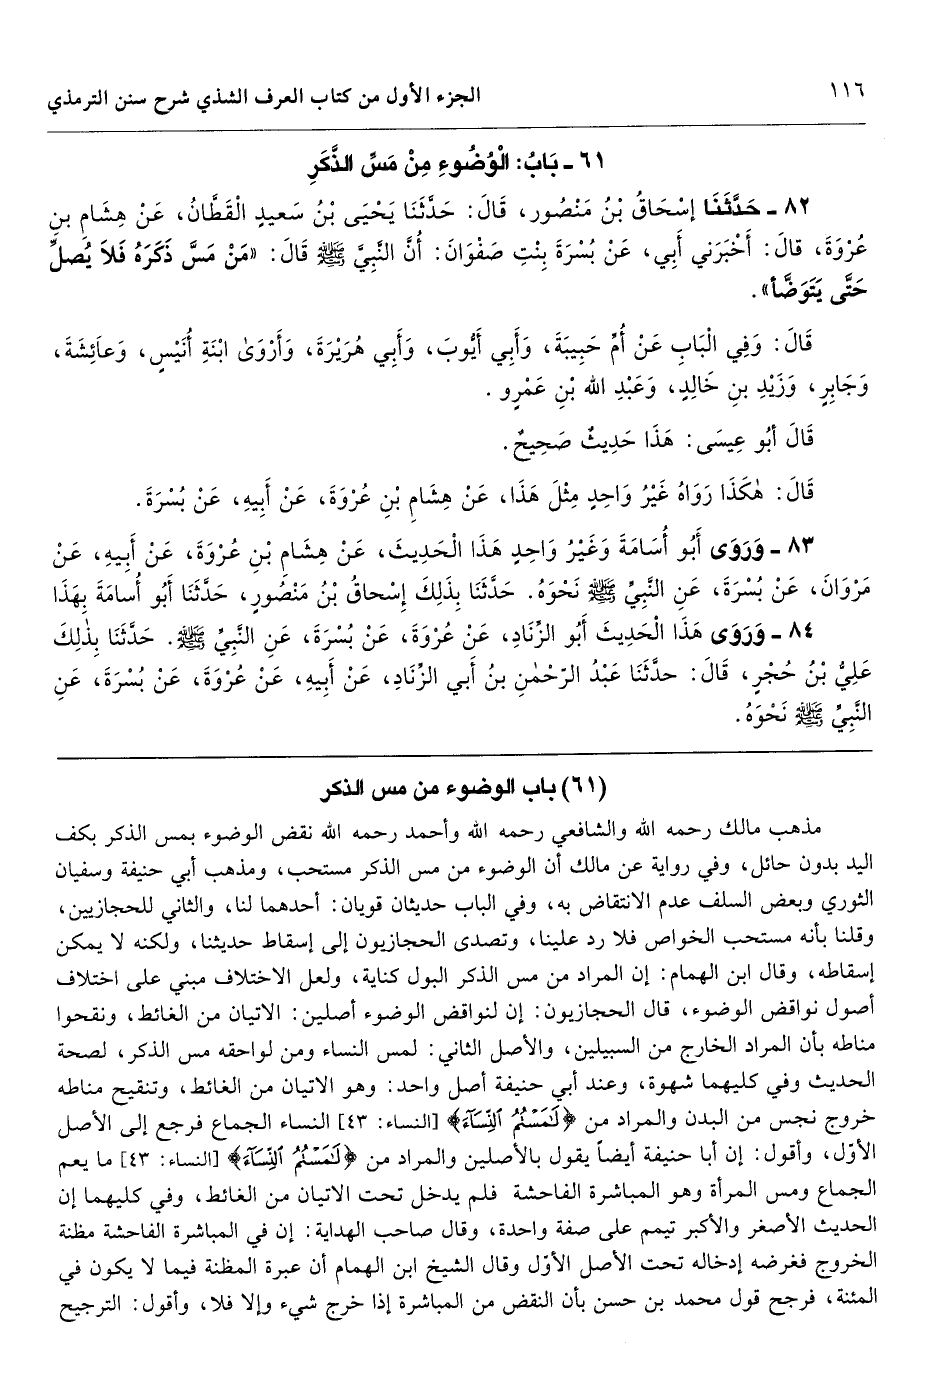 ١١٦
الجزء الأول من كتاب العرف الشذي شرح سنن الترمذي
٦١ ـ بَابُ: الْوُضُوءِ مِنْ مَسِّ الذَّكَرِ
٨٢ ـ حَدَّثَنَا إسْحَاقُ بْنُ مَنْصُورٍ، قَالَ: حَدَّثَنَا يَحْيَى بْنُ سَعِيدٍ الْقَطَّانُ، عَنْ هِشَامِ بنِ
عُرْوَةَ، قالَ: أَخْبَرَنِي أَبِي، عَنْ بُسْرَةَ بِنْتِ صَفْوَانَ: أَنَّ النَّبِيَّ ﷺ قَالَ: «مَنْ مَسَّ ذَكَرَهُ فَلَا يُصَلِّ
حَتَّى يَتَوَضَّأَ».
قَالَ: وَفِي الْبَابِ عَنْ أُمِّ حَبِيبَةَ، وَأَبِي أَيُّوبَ، وَأَبِي هُرَيْرَةَ، وَأَرْوَىٰ ابْنَةِ أُنَيْسٍ، وَعَائِشَةَ،
وَجَابِرٍ، وَزَيْدِ بنِ خَالِدٍ، وَعَبْدِ الله بْنِ عَمْرٍو .
قَالَ أَبُو عِيسَى: هَذَا حَدِيثٌ صَحِيحٌ.
قَالَ: هٰكَذَا رَوَاهُ غَيْرُ وَاحِدٍ مِثْلَ هَذَا، عَنْ هِشَامِ بْنِ عُرْوَةَ، عَنْ أَبِيهِ، عَنْ بُسْرَةَ.
٨٣ ـ وَرَوَى أَبُو أُسَامَةَ وَغَيْرُ وَاحِدٍ هَذَا الْحَدِيثَ، عَنْ هِشَامِ بْنِ عُرْوَةَ، عَنْ أَبِيهِ، عَنْ
مَرْوَانَ، عَنْ بُسْرَةَ، عَنِ النَّبِيِّ ﷺ نَحْوَهُ. حَدَّثَنَا بِذَلِكَ إِسْحاقُ بْنُ مَنْصُورٍ، حَدَّثَنَا أَبُو أُسامَةَ بِهَذَا
٨٤ ـ وَرَوَى هَذَا الْحَدِيثَ أَبُو الزِّنَادِ، عَنْ عُرْوَةَ، عَنْ بُسْرَةَ، عَنِ النَّبِيِّ ﷺ. حَدَّثَنَا بِذٰلِكَ
عَلِيُّ بْنُ حُجْرٍ، قَالَ: حدَّثَنَا عَبْدُ الرّحْمٰنِ بنُ أَبي الزِّنَادِ، عَنْ أَبِيهِ، عَنْ عُرْوَةَ، عَنْ بُسْرَةَ، عَنِ
النَّبِيِّ ﷺ نَحْوَهُ.
(٦١) باب الوضوء من مس الذكر
مذهب مالك رحمه الله والشافعي رحمه الله وأحمد رحمه الله نقض الوضوء بمس الذكر بكف
اليد بدون حائل، وفي رواية عن مالك أن الوضوء من مس الذكر مستحب، ومذهب أبي حنيفة وسفيان
الثوري وبعض السلف عدم الانتقاض به، وفي الباب حديثان قويان: أحدهما لنا، والثاني للحجازيين،
وقلنا بأنه مستحب الخواص فلا رد علينا، وتصدى الحجازيون إلى إسقاط حديثنا، ولكنه لا يمكن
إسقاطه، وقال ابن الهمام: إن المراد من مس الذكر البول كناية، ولعل الاختلاف مبني على اختلاف
أصول نواقض الوضوء، قال الحجازيون: إن لنواقض الوضوء أصلين: الاتيان من الغائط، ونقحوا
مناطه بأن المراد الخارج من السبيلين، والأصل الثاني: لمس النساء ومن لواحقه مس الذكر، لصحة
الحديث وفي كليهما شهوة، وعند أبي حنيفة أصل واحد: وهو الاتيان من الغائط، وتنقيح مناطه
خروج نجس من البدن والمراد من ﴿لَٰمَسْتُمُ ٱلنِّسَآءَ﴾ [النساء: ٤٣] النساء الجماع فرجع إلى الأصل
الأوّل، وأقول: إن أبا حنيفة أيضاً يقول بالأصلين والمراد من ﴿لَٰمَسْتُمُ ٱلنِّسَآءَ﴾ [النساء: ٤٣] ما يعم
الجماع ومس المرأة وهو المباشرة الفاحشة فلم يدخل تحت الاتيان من الغائط، وفي كليهما إن
الحديث الأصغر والأكبر تيمم على صفة واحدة، وقال صاحب الهداية: إن في المباشرة الفاحشة مظنة
الخروج فغرضه إدخاله تحت الأصل الأوّل وقال الشيخ ابن الهمام أن عبرة المظنة فيما لا يكون في
المئنة، فرجح قول محمد بن حسن بأن النقض من المباشرة إذا خرج شيء وإلا فلا، وأقول: الترجيح